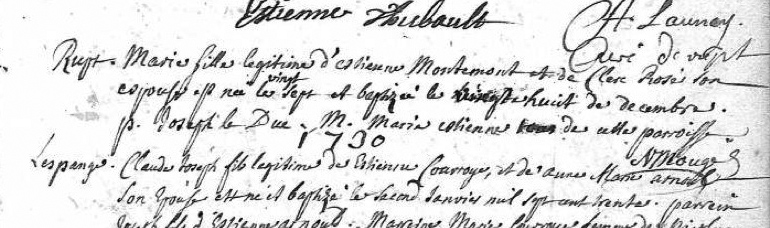 Estienne Thibault
A Launay.
Curé de rupt
Rupt. Marie fille legitime d'estienne Montemont et de Clere Rose son
espouse est née le vingt sept et baptizée le vingte huit de decembre.
p. Joseph le Duc. M. Marie estienne de cette paroisse
1730
N Mougé
Lespange. Claude Joseph fils legitime de Estienne Courroye, et de anne Marie arnould
son Epouse est né et baptizé le second Janvier mil sept cent trente. parrein
Joseph fils d'Estienne arnould. Mareine Marie Courroye femme de Nicolas